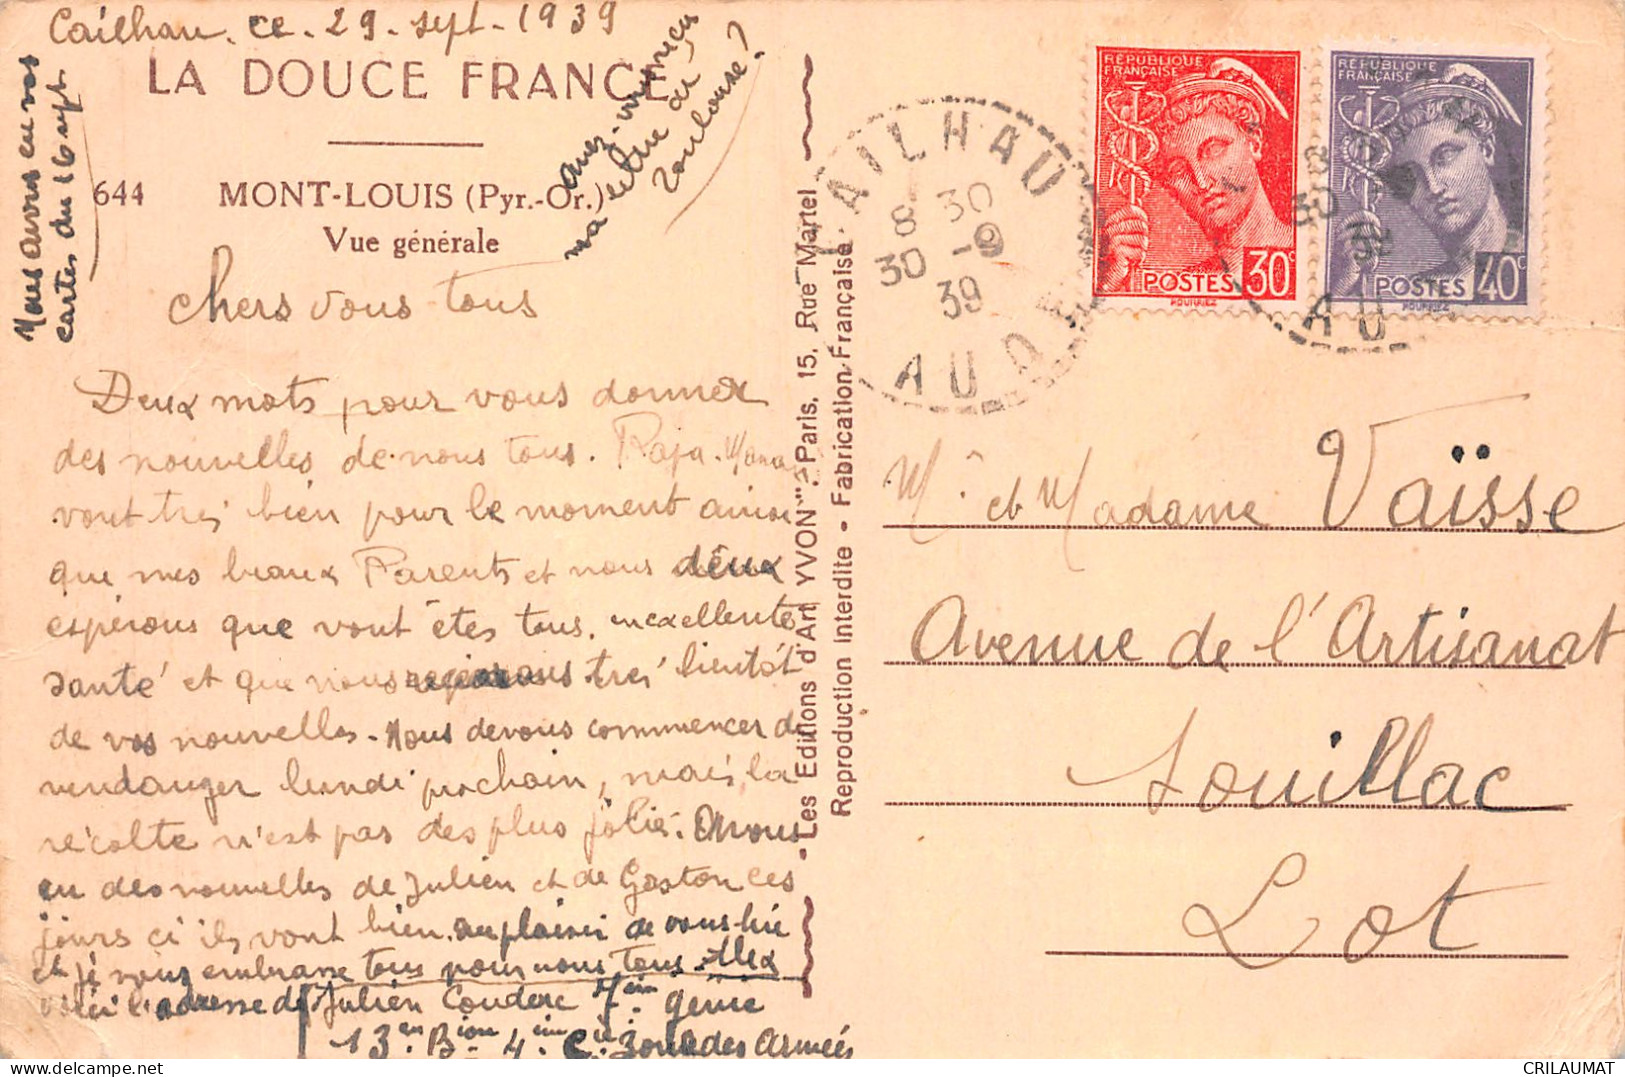 Cailhau. ce. 29. sept. 1939
LA DOUCE FRANCE
644 MONT-LOUIS (Pyr.-Or.)
Vue générale
Nous avons eu vos
cartes du 16 sept.
avez-vous reçu
ma lettre de
Toulouse?
Chers vous tous
Deux mots pour vous donner
des nouvelles de nous tous. Papa. Maman
vont très bien pour le moment ainsi
que mes beaux Parents et nous deux
espérons que vont êtes tous. en exellente
santé et que nous très bientôt
de vos nouvelles. Nous devons commencer de
vendanger lundi prochain, mais la
récolte n'est pas des plus jolie.
en des nouvelles de Julien et de Gaston ces
jours ci ils vont bien. au plaisir de vous lire
et je vous embrasse tous pour nous tous. Alex
voici l'adresse de Julien Couderc 7èm génie
13en Bion 4èm Cie Zone des Armées
Les Editions d'Art YVON", Paris, 15, Rue Martel
Reproduction Interdite - Fabrication Française
CAILHAU
8 30
30 -9
39
AUDE
RÉPUBLIQUE
FRANÇAISE
POSTES 30c
RÉPUBLIQUE
FRANÇAISE
POSTES 40c
AU
Mr et Madame Vaïsse
Avenue de l'Artisanat
Souillac
Lot
CRILAUMAT